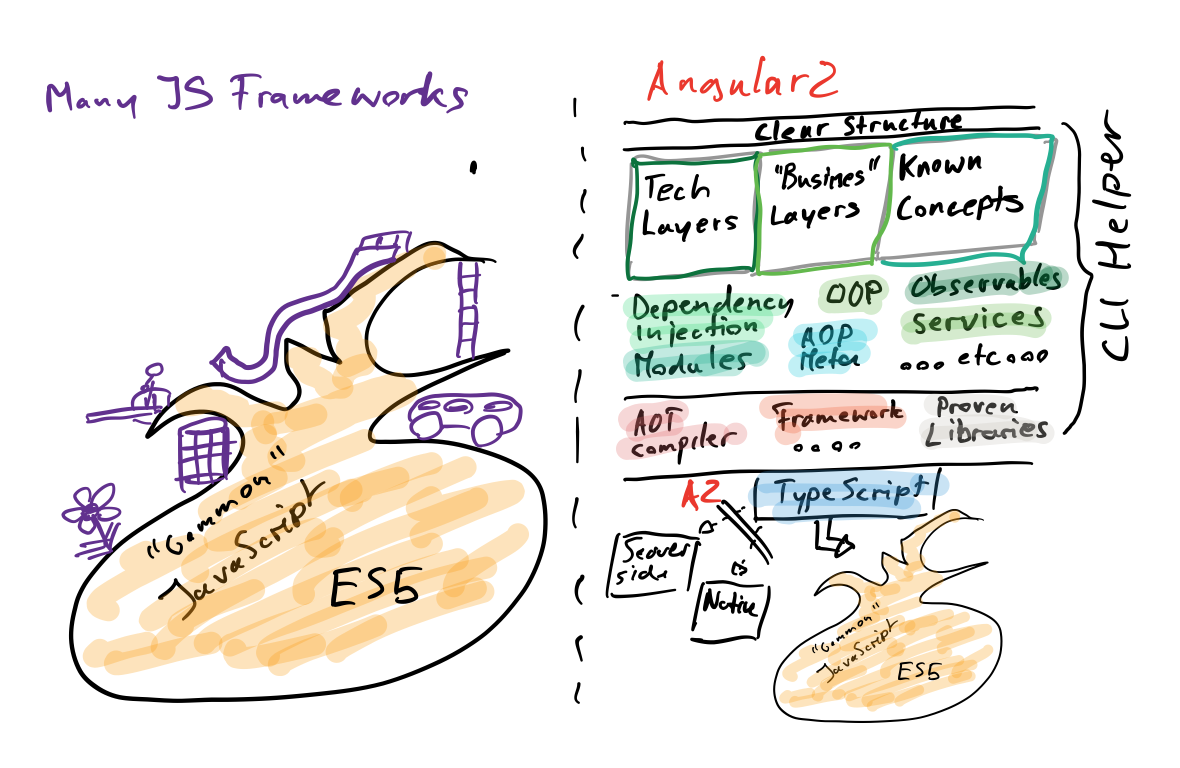 Many JS Frameworks
"Common"
JavaScript
ES5
Angular2
Clear Structure
Tech
Layers
"Busines"
Layers
Known
Concepts
CLI Helper
Dependency
Injection
Modules
OOP
AOP
Meta
Observables
Services
... etc...
AOT
compiler
Framework
....
Proven
Libraries
A2
TypeScript
Server
side
Native
"Common"
JavaScript
ES5